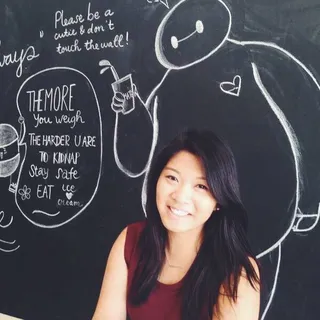 Please be a
cutie & don't
touch the wall!
ays"
THE MORE
You weigh
THE HARDER U ARE
TO KIDNAP
Stay safe
EAT ice
cream